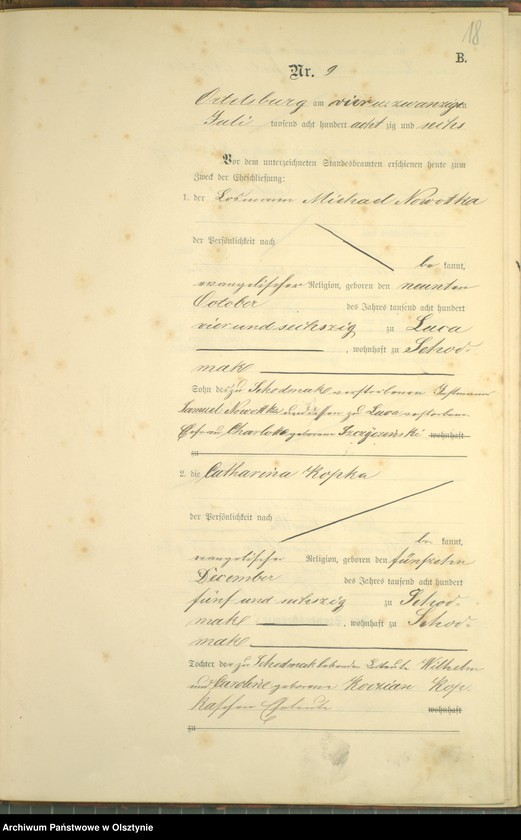 18
B.
Nr. 9
Ortelsburg am vier u. zwanzigsten
Juli tausend acht hundert acht zig und sechs
Vor dem unterzeichneten Standesbeamten erschienen heute zum
Zweck der Eheschließung:
1. der Losmann Michael Nowotka
der Persönlichkeit nach
be kannt,
evangelischer Religion, geboren den neunten
October des Jahres tausend acht hundert
vier und sechszig zu Luca
, wohnhaft zu Schod-
mak
Sohn des zu Schodmak verstorbenen
Samuel Nowotka und dessen zu Luca verstorbenen
Ehefrau Charlotte geborene wohnhaft
zu
2. die Catharina Kopka
der Persönlichkeit nach
be kannt,
evangelischer Religion, geboren den fünfzehn
December des Jahres tausend acht hundert
fünf und sechszig zu Schod-
mak , wohnhaft zu Schod-
mak
Tochter der zu Schodmak lebenden Wilhelm
und Caroline geborene Kop-
kaschen Eheleute wohnhaft
zu
Archiwum Państwowe w Olsztynie